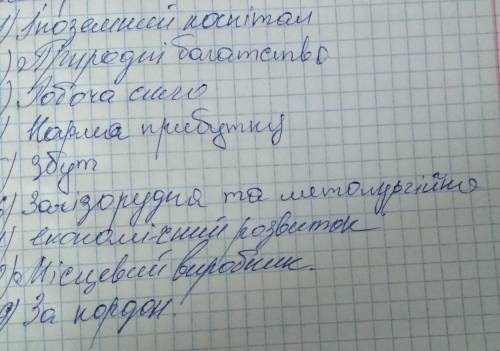 1) Іноземний капітал
) Природні багатство
) Робоча сила
) Норма прибутку
) Збут
) Залізорудна та металургійна
) економічний розвиток
) Місцевий виробник.
9) За кордон.